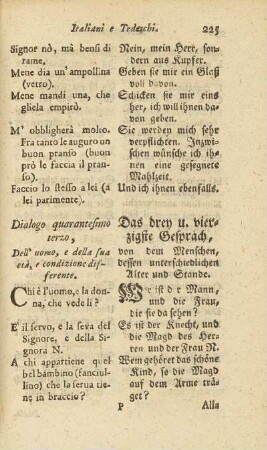 Italiani e Tedeschi. 225
Signor nò, mà bensì di
rame.
Mene dia un'ampollina
(vetro).
Mene mandi una, che
gliela empirò.
M' obbligherà molto.
Fra tanto le auguro un
buon pranso (buon
prò le faccia il pran-
so).
Faccio lo stesso a lei (a
lei parimente).
Nein, mein Herr, son-
dern aus Kupfer.
Geben sie mir ein Glaß
voll davon.
Schicken sie mir eins
her, ich will ihnen da-
von geben.
Sie werden mich sehr
verpflichten. Inzwi-
schen wünsche ich ih-
nen eine gesegnete
Mahlzeit.
Und ich ihnen ebenfalls.
Dialogo quarantesimo
terzo,
Dell' uomo, e della sua
età, e condizione dif-
ferente.
Chi è l'uomo, e la don-
na, che vede lì?
È il servo, e la serva del
Signore, e della Si-
gnora N.
A chi appartiene quel
bel bambino (fanciul-
lino) che la serva tie-
ne in braccio?
Das drey u. vier-
zigste Gespräch,
von dem Menschen,
dessen unterschiedlichen
Alter und Stande.
Wer ist der Mann,
und die Frau,
die sie da sehen?
Es ist der Knecht, und
die Magd des Herrn
und der Frau N.
Wem gehöret das schöne
Kind, so die Magd
auf dem Arme trä-
get?
P Alla